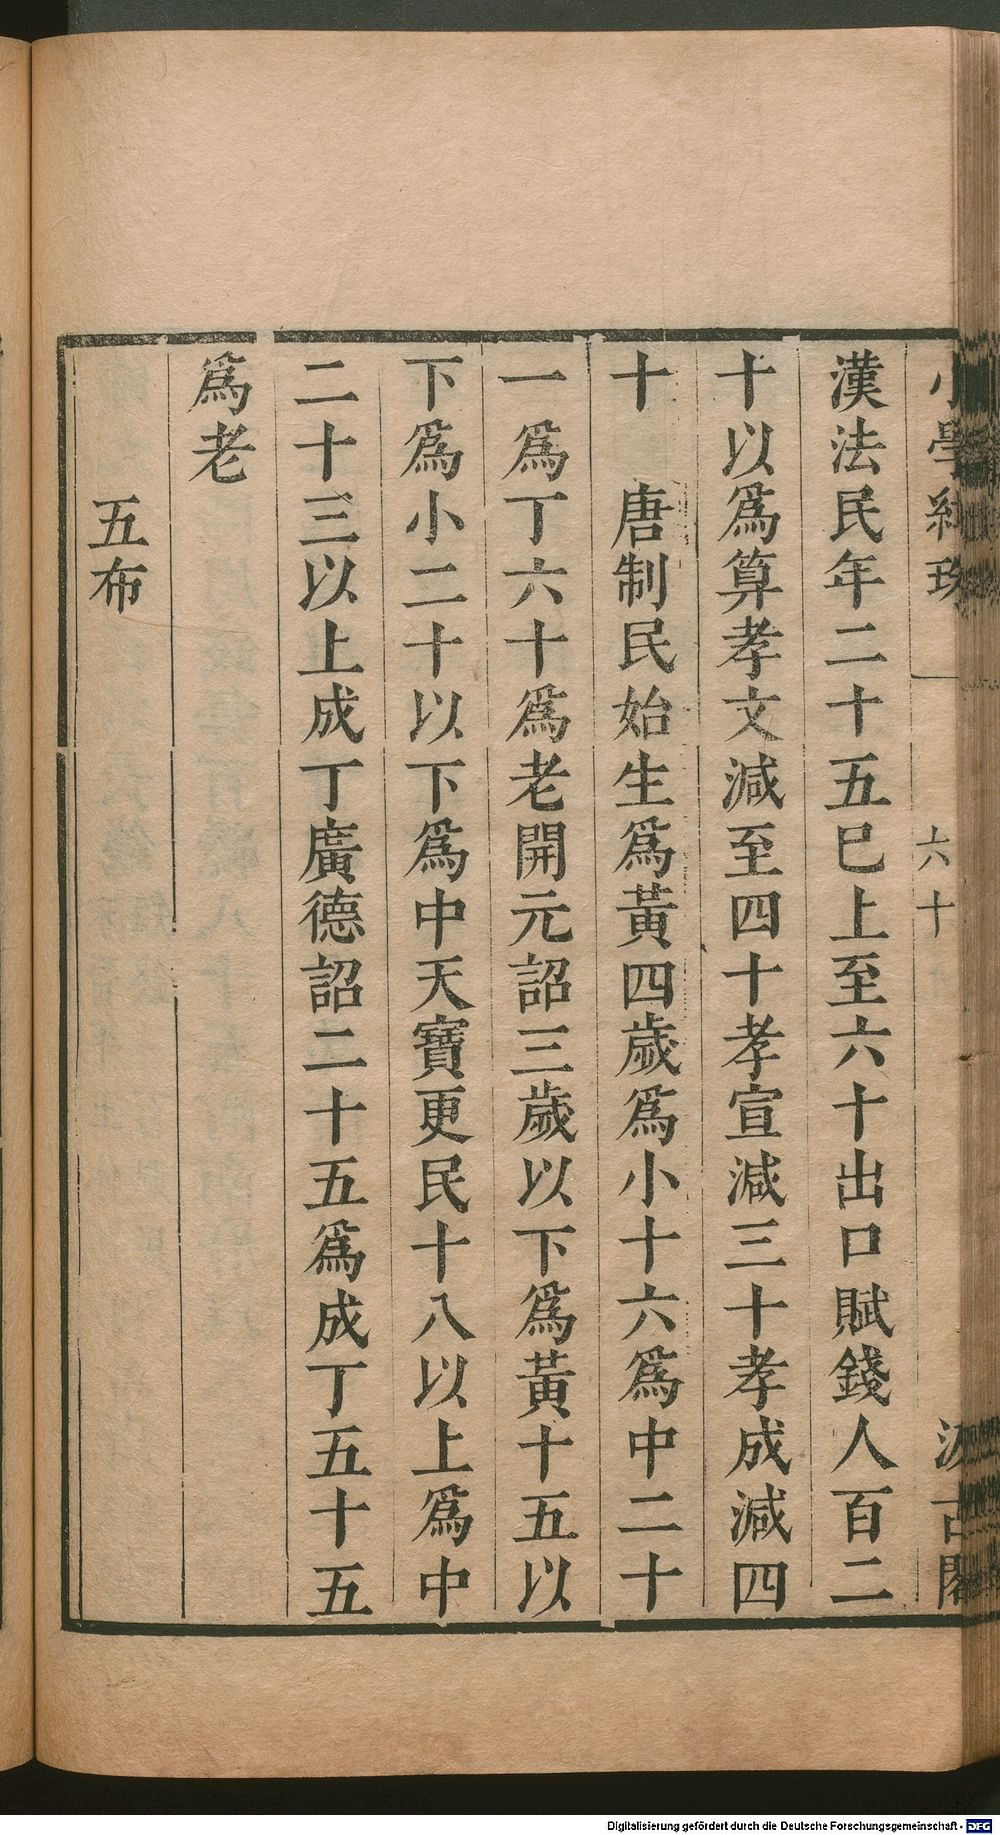 小學紺珠 六十 汲古閣
漢法民年二十五巳上至六十出口賦錢人百二
十以爲算孝文減至四十孝宣減三十孝成減四
十 唐制民始生爲黃四歲爲小十六爲中二十
一爲丁六十爲老開元詔三歲以下爲黃十五以
下爲小二十以下爲中天寶更民十八以上爲中
二十三以上成丁廣德詔二十五爲成丁五十五
爲老
五布
Digitalisierung gefördert durch die Deutsche Forschungsgemeinschaft - DFG